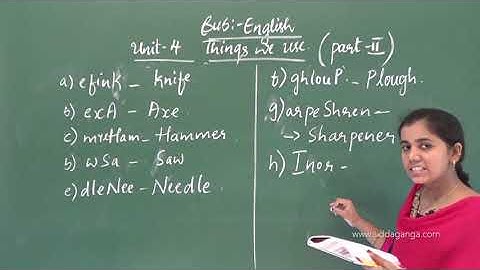 Sub:- English
Unit-4 Things we use. (part-II)
a) efink - Knife
b) exA - Axe
c) mreHam - Hammer
b) wSa - Saw
e) dleNee - Needle
t) ghlouP - Plough.
g) arpeShren -
→ Sharpener
h) Inor -
www.siddaganga.com